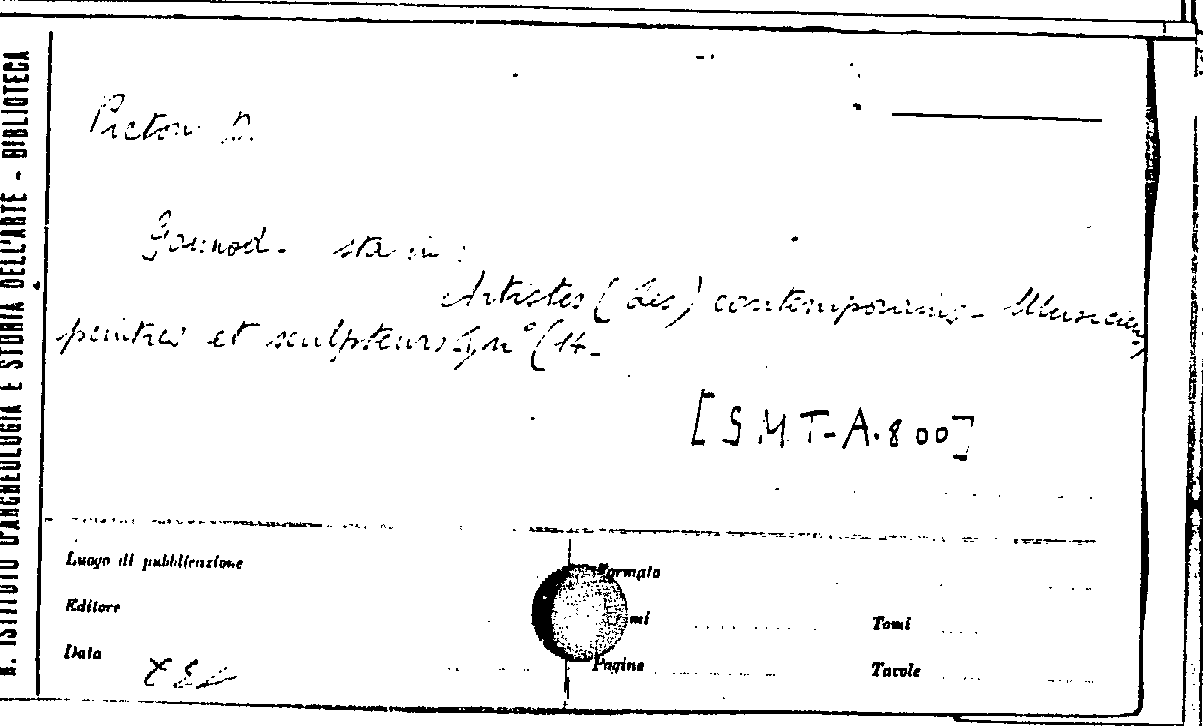 R. ISTITUTO D'ARCHEOLOGIA E STORIA DELL'ARTE - BIBLIOTECA
Picton D.
Gounod.
Artistes (Les) contemporains - Musiciens,
peintres et sculpteurs, n° (14.
[SMT-A.800]
Luogo di pubblicazione
Formato
Editore
Tomi
Data
Pagine
Tavole